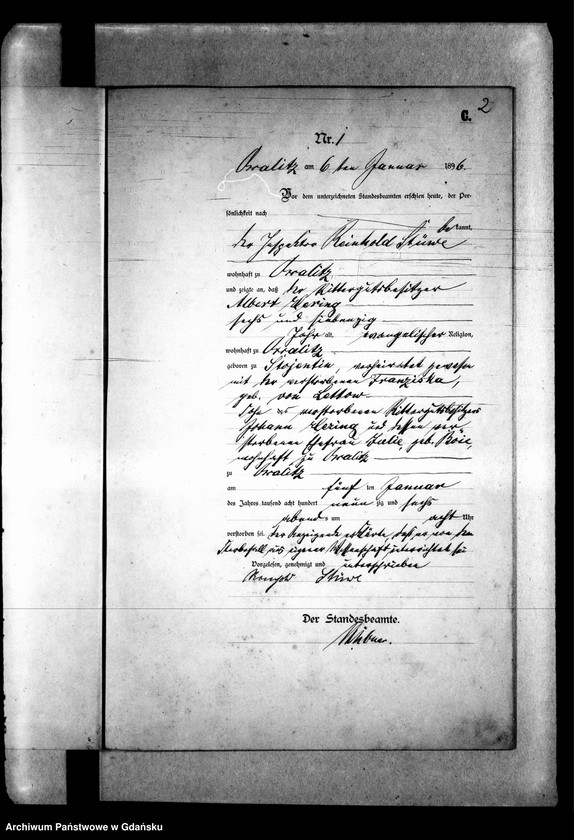 C. 2
Nr. 1
am 6 ten Januar 1896.
Vor dem unterzeichneten Standesbeamten erschien heute, der Per-
sönlichkeit nach
be kannt,
der Inspektor Reinhold Stüwe
wohnhaft zu
und zeigte an, daß der Rittergutsbesitzer
Albert Hering
sechs und siebenzig
Jahr alt, evangelischer Religion,
wohnhaft zu
geboren zu Stojentin, verheiratet gewesen
mit der verstorbenen Franziska,
geb. von Lettow
Sohn des verstorbenen Rittergutsbesitzers
Johann Hering und dessen ver
storbenen Ehefrau Julie, geb.
wohnhaft zu
zu
am fünf ten Januar
des Jahres tausend acht hundert neun zig und sechs
abends um acht Uhr
verstorben sei. Der Anzeigende erklärte, daß er von dem
Sterbefall aus eigener Wissenschaft unterrichtet sei
Vorgelesen, genehmigt und unterschrieben
Stüwe
Der Standesbeamte.
Archiwum Państwowe w Gdańsku